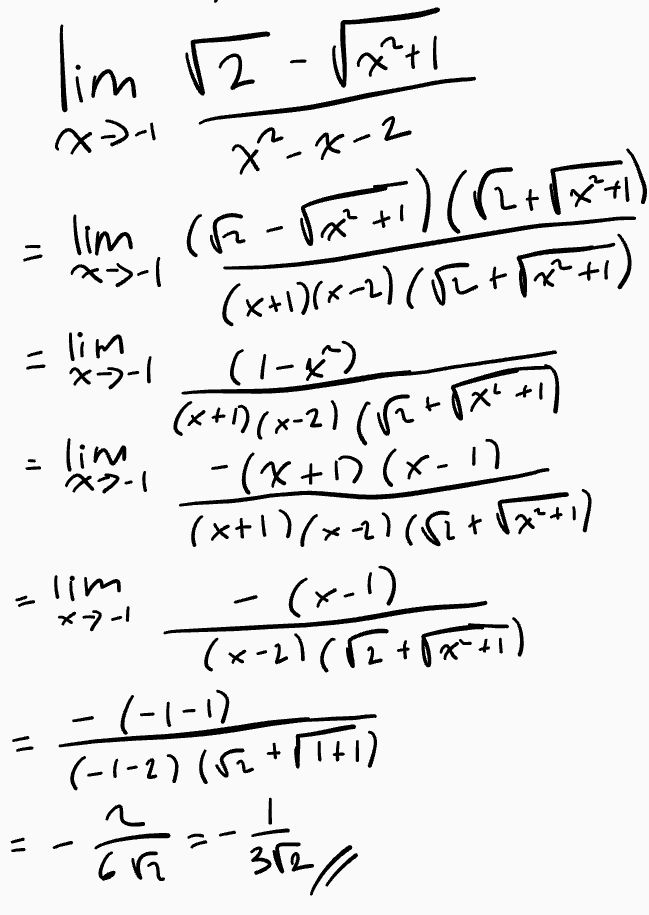 lim x→-1 (√2 - √(x²+1)) / (x² - x - 2)
= lim x→-1 ((√2 - √(x²+1)) (√2 + √(x²+1))) / ((x+1)(x-2)(√2 + √(x²+1)))
= lim x→-1 (1 - x²) / ((x+1)(x-2)(√2 + √(x²+1)))
= lim x→-1 (-(x+1)(x-1)) / ((x+1)(x-2)(√2 + √(x²+1)))
= lim x→-1 (-(x-1)) / ((x-2)(√2 + √(x²+1)))
= (-(-1-1)) / ((-1-2)(√2 + √(1+1)))
= - 2/(6√2) = - 1/(3√2) //